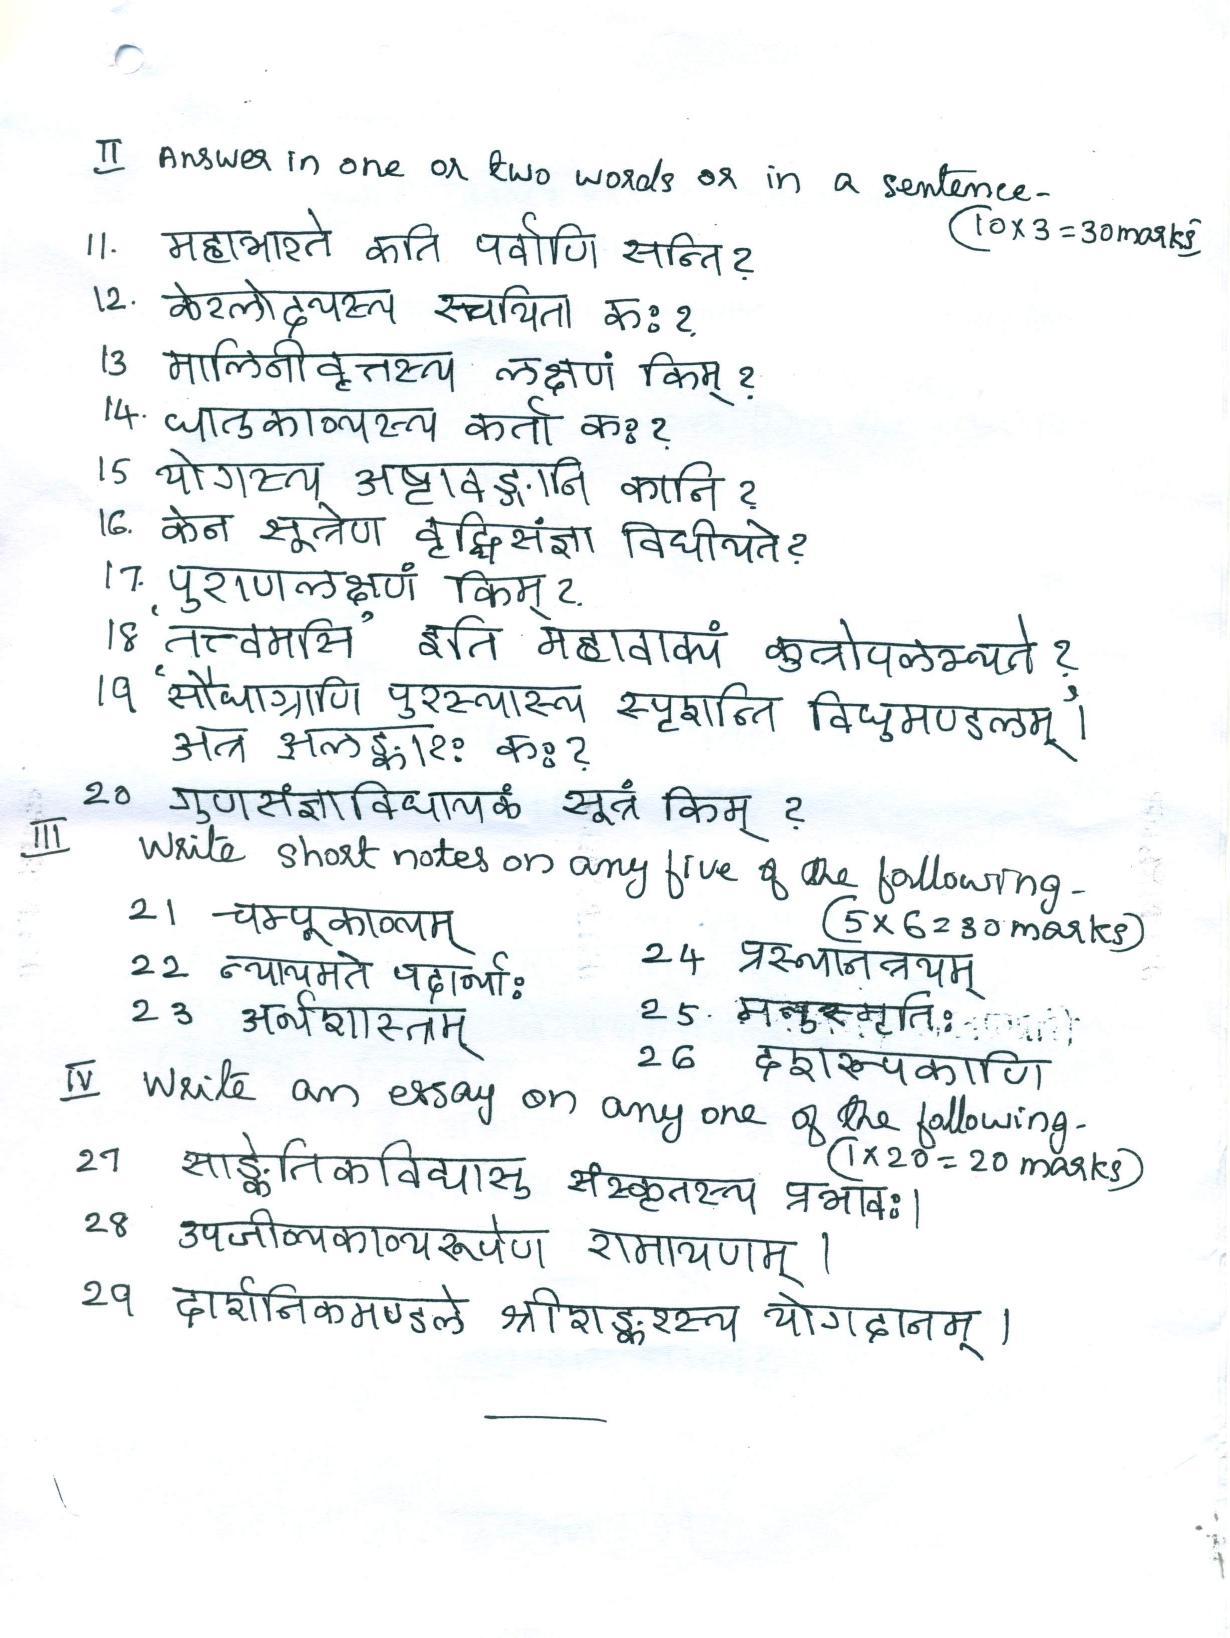 II Answer in one or two words or in a sentence-
(10x3=30marks)
11. महाभारते कति पर्वाणि सन्ति?
12. केरलोदयस्य रचयिता कः?
13 मालिनीवृत्तस्य लक्षणं किम्?
14. धातुकाव्यस्य कर्ता कः?
15 योगस्य अष्टावङ्गानि कानि?
16. केन सूत्रेण वृद्धिसंज्ञा विधीयते?
17. पुराणलक्षणं किम्?
18 'तत्त्वमसि' इति महावाक्यं कुत्रोपलभ्यते?
19 'सौधाग्राणि पुरस्यास्य स्पृशन्ति विधुमण्डलम्'।
अत्र अलङ्कारः कः?
20 गुणसंज्ञाविधायकं सूत्रं किम्?
III Write short notes on any five of the following-
(5x6=30marks)
21 चम्पूकाव्यम्
24 प्रस्थानत्रयम्
22 न्यायमते पदार्थाः
25. मनुस्मृतिः
23 अर्थशास्त्रम्
26 दशरूपकाणि
IV Write an essay on any one of the following-
(1x20=20 marks)
27 साङ्केतिकविद्यासु संस्कृतस्य प्रभावः।
28 उपजीव्यकाव्यरूपेण रामायणम्।
29 दार्शनिकमण्डले श्रीशङ्करस्य योगदानम्।